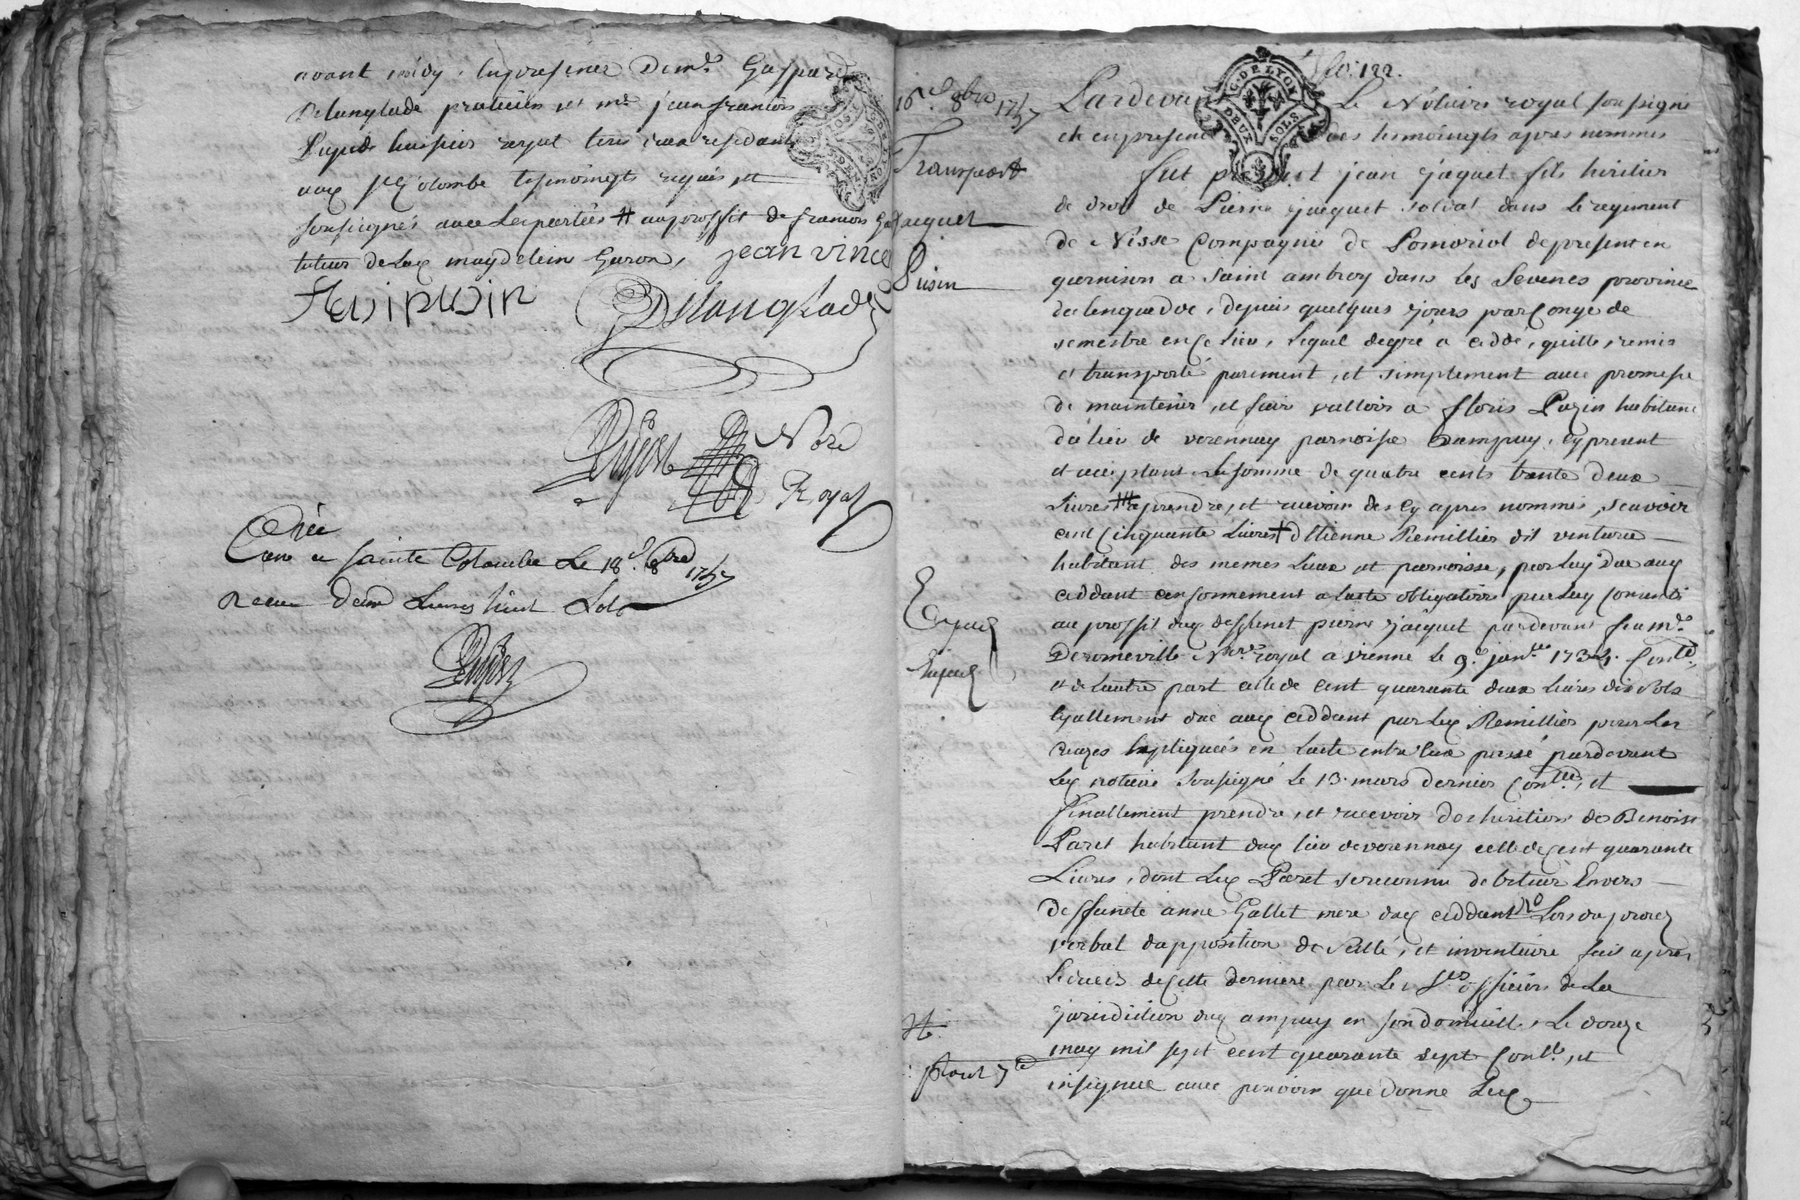 avant midy, en presence de mr. Gaspard
Delanglade praticien et me. jean francois
huissier royal tous deux residants
aux ste Colombe tesmoingts requis et
soussignés avec les parties # au proffit de francois
tuteur de lad. magdeleine Garon,
jean vince
Delanglade
Dujast
Nore
Royal
Cllé
à sainte Colombe Le 18e. 8bre 1747
Receu deux Livres huit sols
Dujast
16e 8bre 1747
Transport
Jacquet
Pusin
Expedié
Expedié
G. DE LYON
DEUX SOLS
fo. 122.
Pardevant Le Notaire royal soussigné
et en presence des tesmoingts apres nommes
fut present jean jacquet fils heritier
de droit de Pierre jacquet soldat dans le regiment
de Nisse Compagnie de Lomoriol de present en
garnison a saint ambroy dans les Sevenes province
de lenguedoc, depuis quelques jours par Congé de
semestre en ce lieu, lequel degré a ceddé, quitté, remis
et transporté purement, et simplement avec promesse
de maintenir, et faire valloir a floris Puzin habitant
du lieu de verennay parroisse dampuy, cy present
et acceptant la somme de quatre cents trente deux
livres # a prendre, et recevoir des cy apres nommes, scavoir
cent Cinquante Livres + d'Etienne Remillier dit venture
habitant des memes Lieu et parroisse, par luy due aux
ceddant conformement a lacte obligatoire par luy consenti
au proffit dud. deffunct pierre jacquet pardevant feu me.
Deromeville Nore royal a vienne le 9e janer 1734. Contlé,
et de lautre part celle de Cent quarante deux livres dix sols
egallement due aud. ceddant par led. Remillier pour les
cauzes expliquées en lacte entre eux passé pardevant
led. notaire soussigné le 13. mars dernier Contlé, et
finallement prendre, et recevoir des heritiers de Benoist
Paret habitant dud. lieu de verennay celle de Cent quarante
Livres, dont led. Paret se reconnu debiteur Envers
deffuncte anne Gallet mere dud. ceddant Lors du procez
verbal dapposition de scellé, et inventaire fait apres
le deces de cette derniere par les Srs officiers de la
jurisdiction dud. ampuy en son domicille, le douze
may mil sept cent quarante sept Contlé, et
insignué avec pouvoir que donne led.